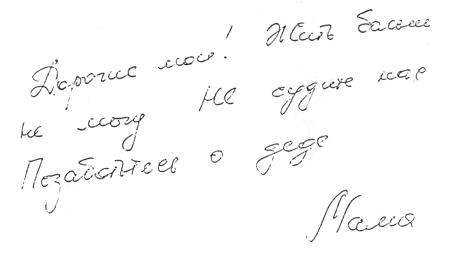 Дорогие мои! Жить больше
не могу Не судите нас
Позаботьтесь о деде
Мама